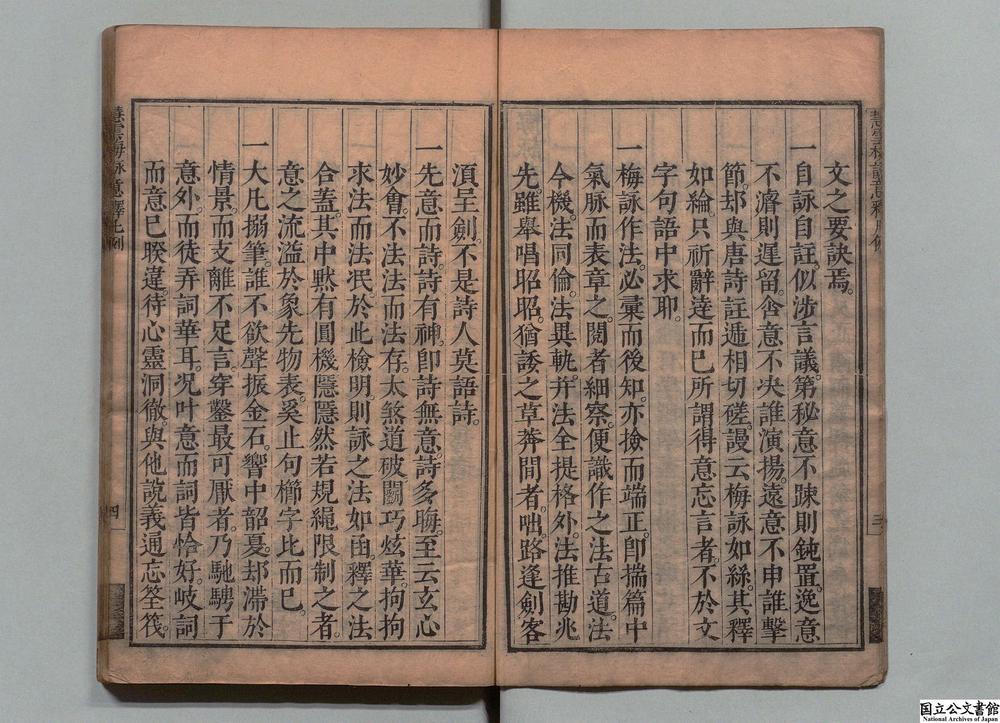 文之要訣焉。
一自詠自註。似涉言議。第秘意不踈則鈍置。逸意
不濬則遲留。含意不央誰演揚。遠意不申誰擊
節。却與唐詩註遞相切磋。謾云梅詠如絲。其釋
如綸。只祈辭達而已。所謂得意忘言者。不於文
字句語中求耶。
一梅詠作法。必彙而後知。亦撿而端正。卽揣篇中
氣脈而表章之。閱者細察。便識作之法古道。法
今機。法同倫。法異軌。幷法全提格外。法推勘兆
先。雖舉唱昭昭。猶諉之草莽間者。咄。路逢劍客
須呈劍。不是詩人莫語詩。
一先意而詩。詩有神。卽詩無意。詩多晦。至云玄心
妙會。不法法而法存。太煞道破關。巧炫華。拘拘
求法而法泯。於此檢明。則詠之法如函。釋之法
合蓋。其中默有圓機隱隱然若規繩限制之者。
意之流溢於象先物表。奚止句櫛字比而已。
一大凡搦筆。誰不欲聲振金石。響中韶戞。却滯於
情景。而支離不足言。穿鑿最可厭者。乃馳騁于
意外。而徒弄詞華耳。况叶意而詞皆恰好。岐詞
而意已暌違。待心靈洞徹。與他說義通忘筌筏。
四
三
国立公文書館
National Archives of Japan